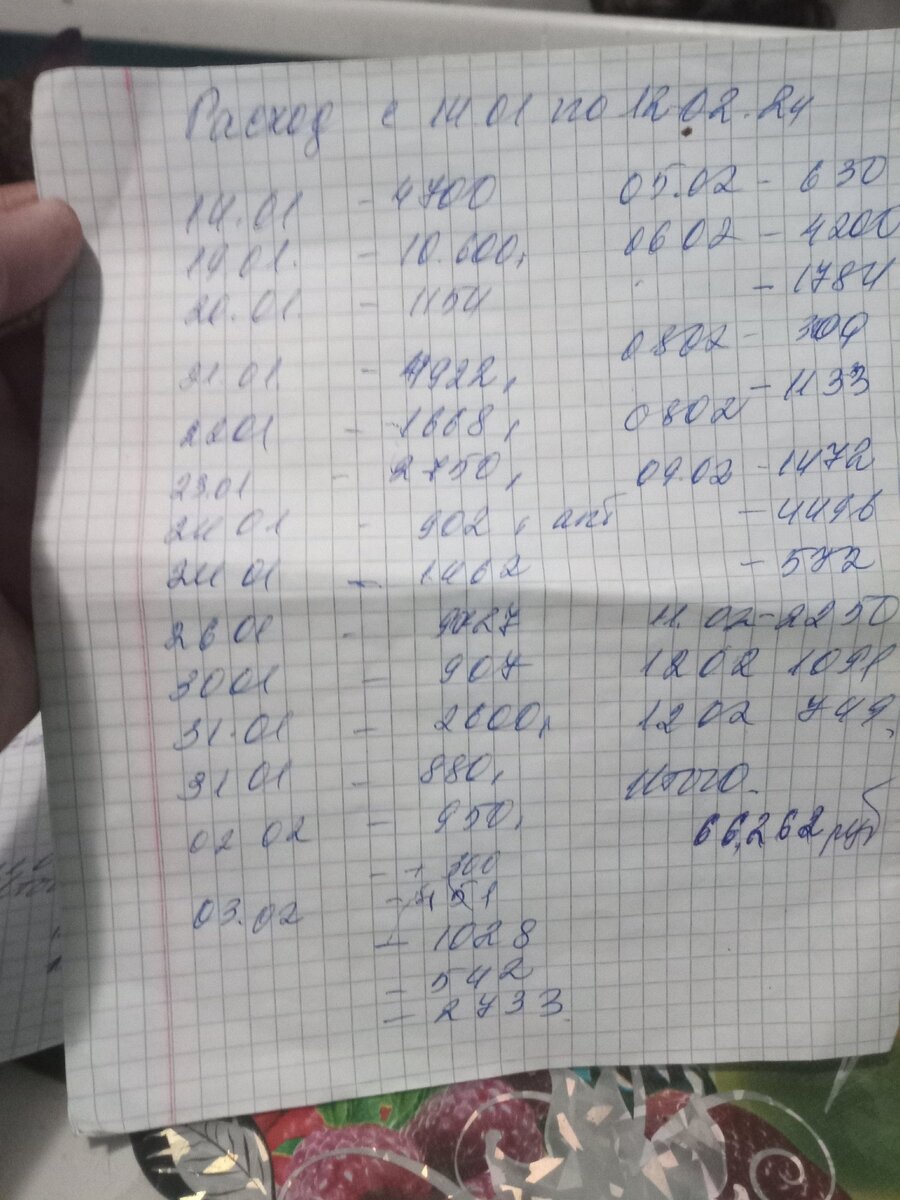 Расход с 14 01 по 12.02.24
14.01 - 4700
19.01. - 10.600,
20.01 - 1154
21.01 - 4922,
22 01 - 1668,
23.01 - 2750,
24 01 - 902, апт
24 01 - 1462
26 01 - 9027
30 01 - 907
31.01 - 2600,
31 01 - 880,
02 02 - 950,
- + 300
03.02 - 451
- 1028
- 542
- 2733
05.02 - 630
06 02 - 4200
- 1784
08 02 - 300
08 02 - 1133
09.02 - 1472
- 4496
- 572
11.02 - 2250
12 02 1091
12 02 749,
Итого.
66,262 руб